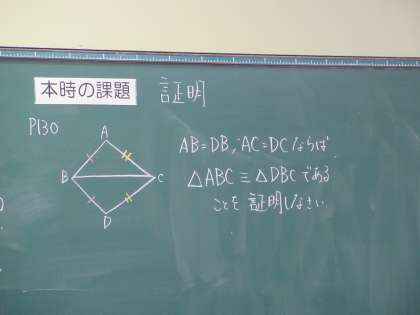 本時の課題 証明
P130
A
B
C
D
AB=DB, AC=DCならば
△ABC≡△DBCである
ことを証明しなさい